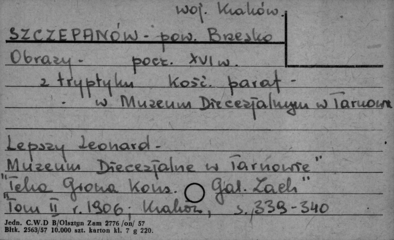 woj. Kraków.
SZCZEPANÓW - pow. Brzesko
Obrazy - pocz. XVI w.
z tryptyku kość. paraf -
- w Muzeum Diecezjalnym w Tarnowie
Lepszy Leonard -
Muzeum Diecezjalne w Tarnowie"
"Teka Grona Kons. Gal. Zach"
"Tom II r. 1906. Kraków, s. 339-340
Jedn. C.W D B/Olsztyn Zam 2776/on/ 57
Błtk. 2563/57 10.000 szt. karton kl. 7 g 220.